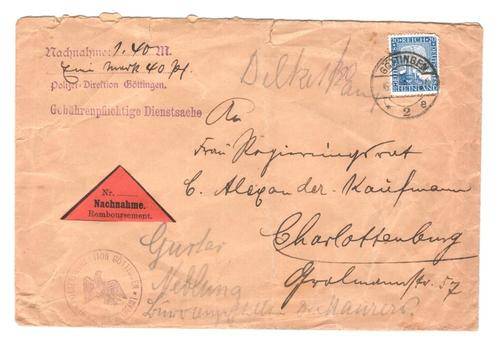 Nachnahme: 1.40 M.
Eine Mark 40 Pf.
Polizei-Direktion Göttingen.
Gebührenpflichtige Dienstsache
REICH
RHEINLAND
GÖTTINGEN
2
a
An
Frau Regierungsrat
C. Alexander-Kaufmann
Charlottenburg
Grolmannstr. 57
Nr.
Nachnahme.
Remboursement.
Gustav
DIREKTION GÖTTINGEN